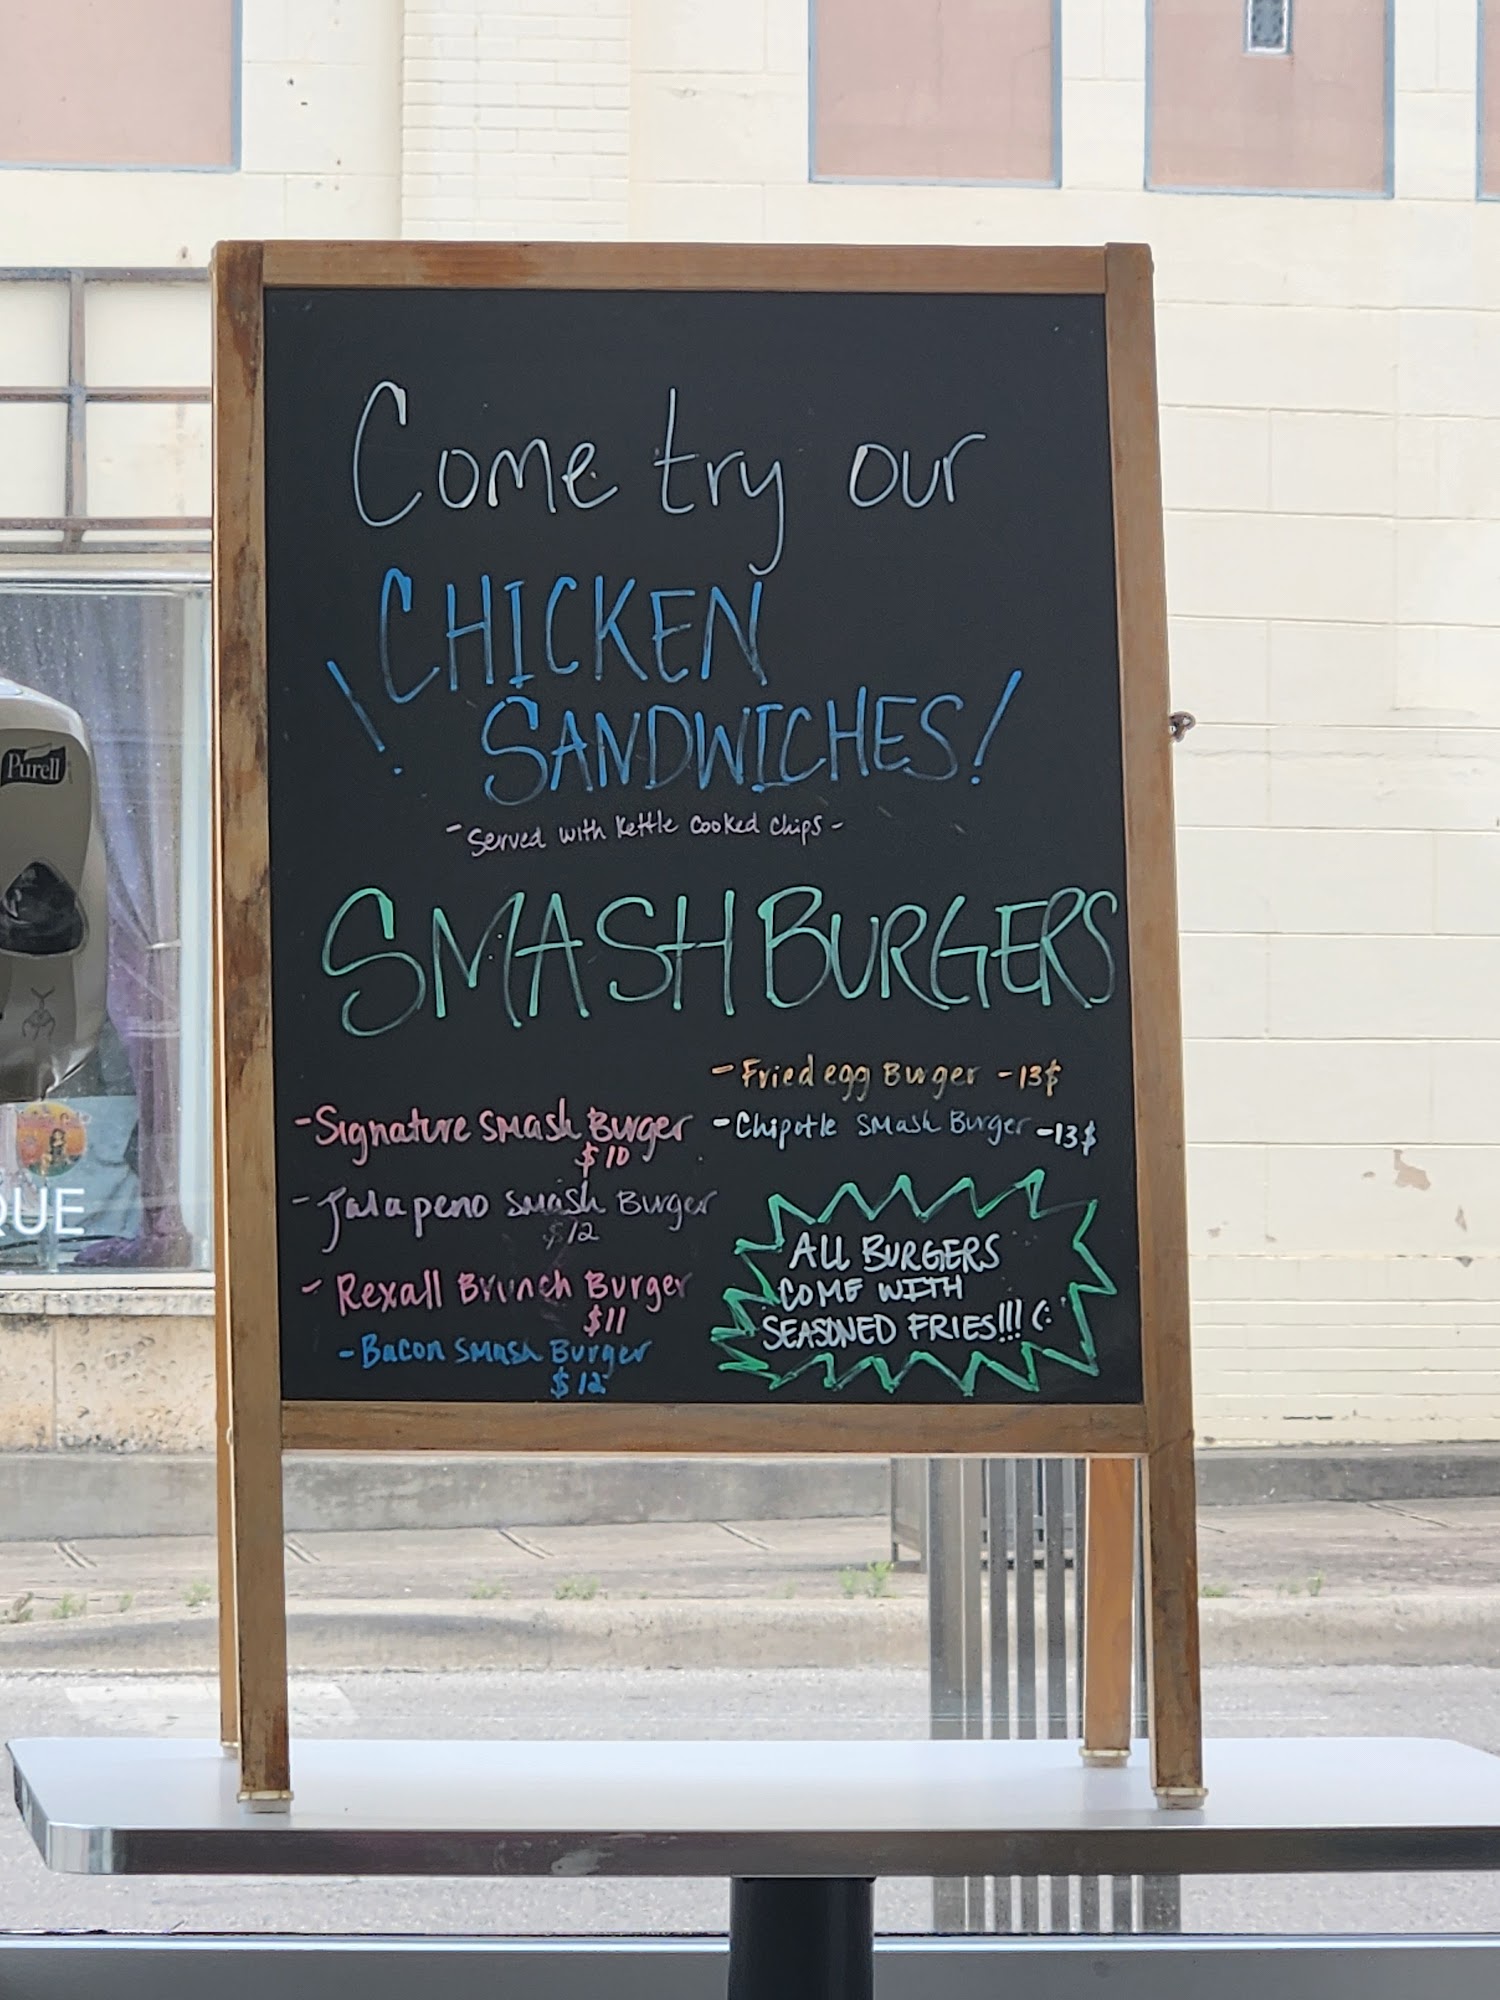 Come try our
CHICKEN
! SANDWICHES!
- Served with Kettle Cooked Chips -
SMASHBURGERS
- Signature Smash Burger
$10
- Jalapeno Smash Burger
$12
- Rexall Brunch Burger
$11
- Bacon Smash Burger
$12
- Fried egg Burger - 13$
- Chipotle Smash Burger - 13$
ALL BURGERS
COME WITH
SEASONED FRIES!!! (:
Purell
QUE